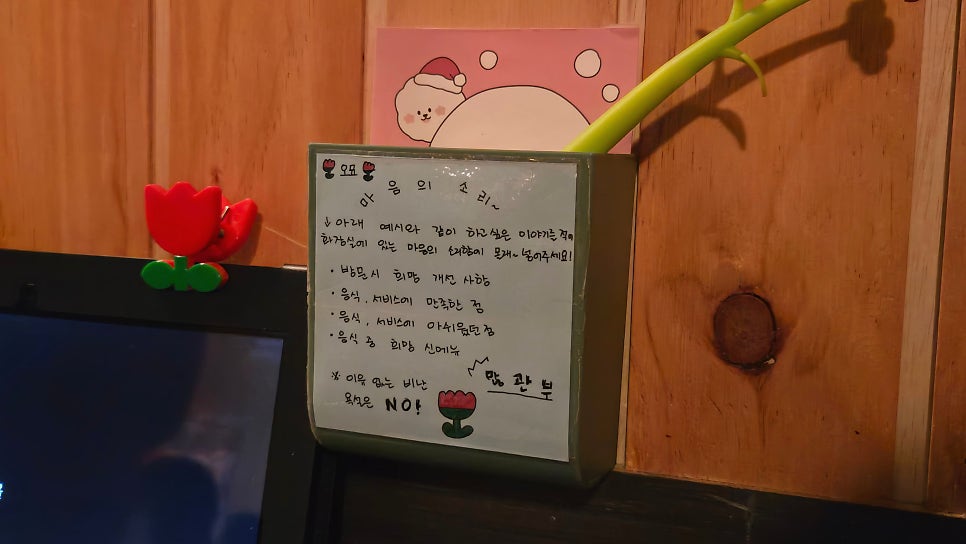 오묘
마음의 소리~
↓ 아래 예시와 같이 하고싶은 이야기를 적어
화장실에 있는 마음의 소리함에 몰래~ 넣어주세요!
• 방문시 희망 개선 사항
• 음식, 서비스에 만족한 점
• 음식, 서비스에 아쉬웠던 점
• 음식 중 희망 신메뉴
많관부
※ 이유 없는 비난
욕설은 NO!